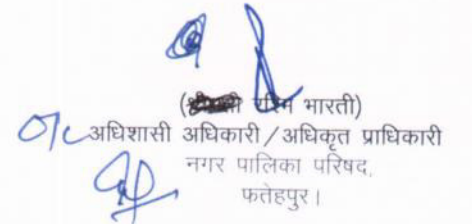 ( रश्मि भारती)
अधिशासी अधिकारी/अधिकृत प्राधिकारी
नगर पालिका परिषद,
फतेहपुर।